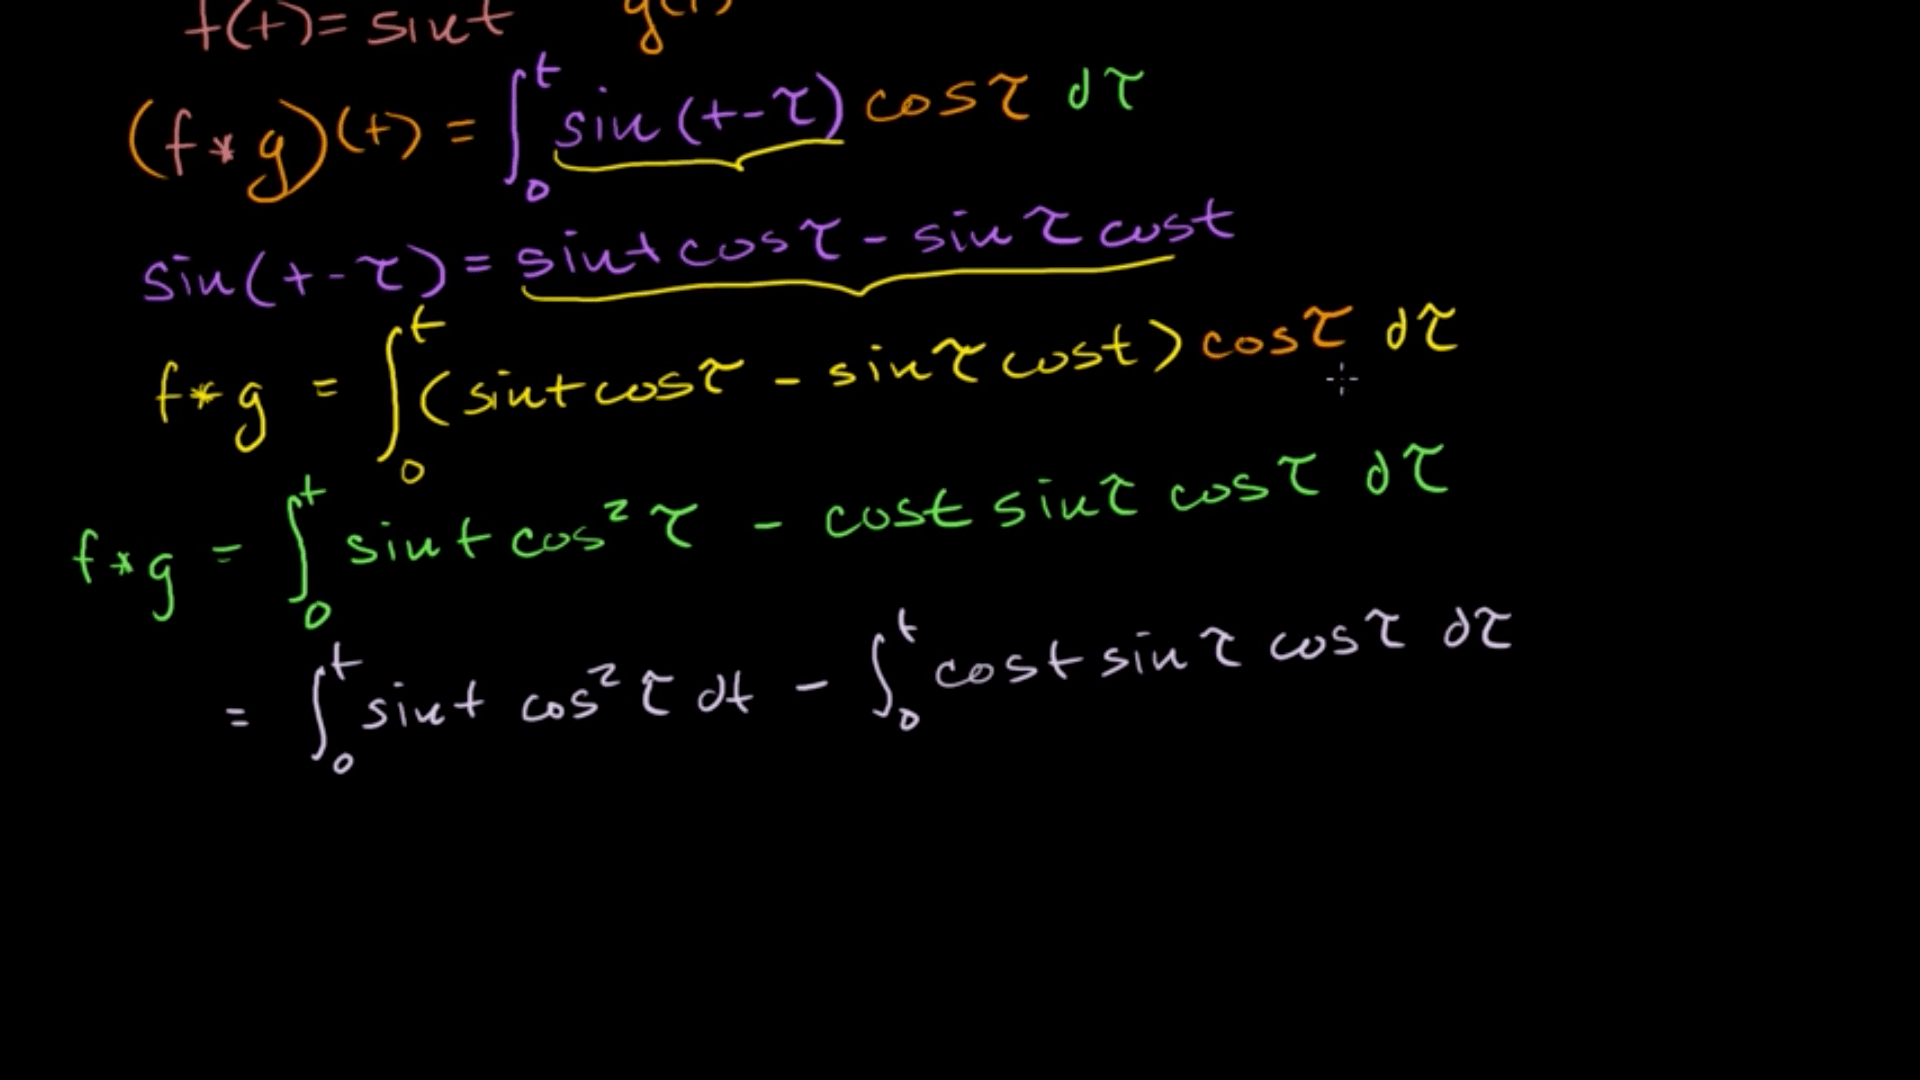 f(t) = sin t g(t)
(f * g)(t) = ∫₀ᵗ sin(t-τ) cos τ dτ
sin(t-τ) = sin t cos τ - sin τ cos t
f * g = ∫₀ᵗ (sin t cos τ - sin τ cos t) cos τ dτ
f * g = ∫₀ᵗ sin t cos² τ - cos t sin τ cos τ dτ
= ∫₀ᵗ sin t cos² τ dt - ∫₀ᵗ cos t sin τ cos τ dτ